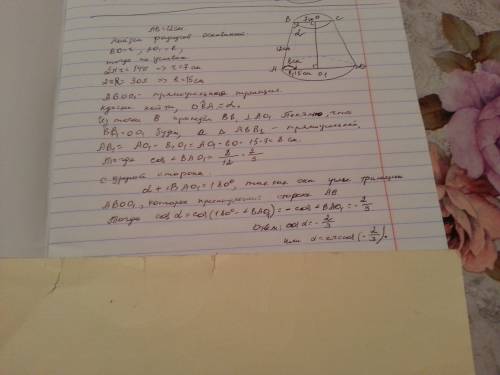 AB=12см
Найдём радиусы оснований
BO=r, AO₁=R,
тогда по условию
2πr=14π => r=7см
2πR=30π => R=15см
ABOO₁- прямоугольная трапеция
Нужно найти, ∠OBA=α.
Из точки B проведём BB₁⊥AO₁
BB₁=OO₁ ΔABB₁ - прямоугольный.
AB₁= AO₁-B₁O₁=AO₁-BO=15-7=8см.
Тогда cos∠BAO₁=8/12=2/3
С другой стороны:
α+∠BAO₁=180°, так как они углы трапеции
ABOO₁, которые стороне AB
Тогда cosα=cos(180°-∠BAO₁)=-cos∠BAO₁=-2/3
Ответ: cosα=-2/3
или α=arccos(-2/3).
B O C
α
12см
8см
A 15см O₁ D